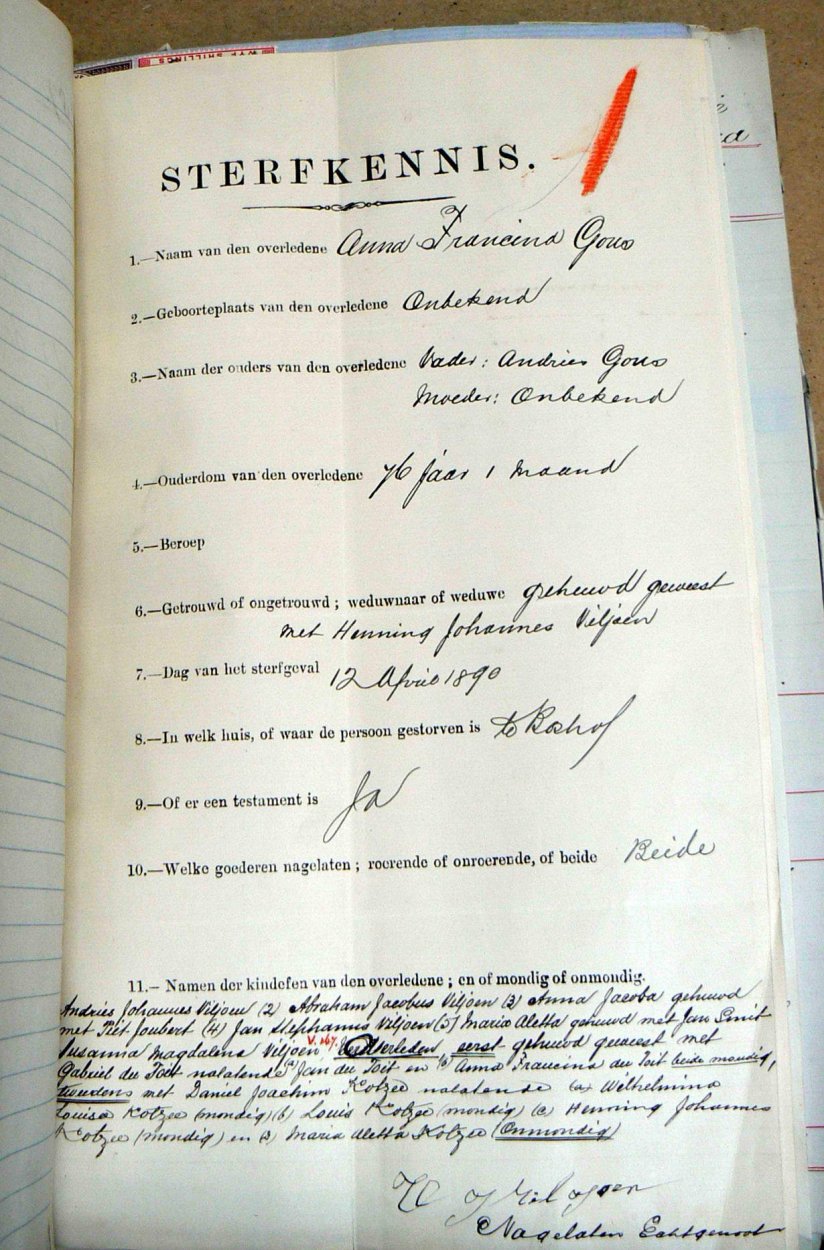 VYF SHILLINGS
STERFKENNIS.
1.—Naam van den overledene Anna Francina Gous
2.—Geboorteplaats van den overledene Onbekend
3.—Naam der ouders van den overledene Vader: Andries Gous
Moeder: Onbekend
4.—Ouderdom van den overledene 76 jaar 1 maand
5.—Beroep
6.—Getrouwd of ongetrouwd; weduwnaar of weduwe gehuwd geweest
met Henning Johannes Viljoen
7.—Dag van het sterfgeval 12 April 1890
8.—In welk huis, of waar de persoon gestorven is te Boshof
9.—Of er een testament is Ja
10.—Welke goederen nagelaten; roerende of onroerende, of beide Beide
11.— Namen der kinderen van den overledene; en of mondig of onmondig.
Andries Johannes Viljoen (2) Abraham Jacobus Viljoen (3) Anna Jacoba gehuwd
met Piet Joubert (4) Jan Stephanus Viljoen (5) Maria Aletta gehuwd met Jan Smit
Susanna Magdalena Viljoen overleden, eerst gehuwd geweest met
Gabriel du Toit nalatende (a) Jan du Toit en (b) Anna Francina du Toit beide mondig,
tweedens met Daniel Joachim Kotzee nalatende (a) Wilhelmina
Louisa Kotzee (mondig) (b) Louis Kotzee (mondig) (c) Henning Johannes
Kotzee (mondig) en (d) Maria Aletta Kotzee (Onmondig)
H J Viljoen
Nagelaten Echtgenoot